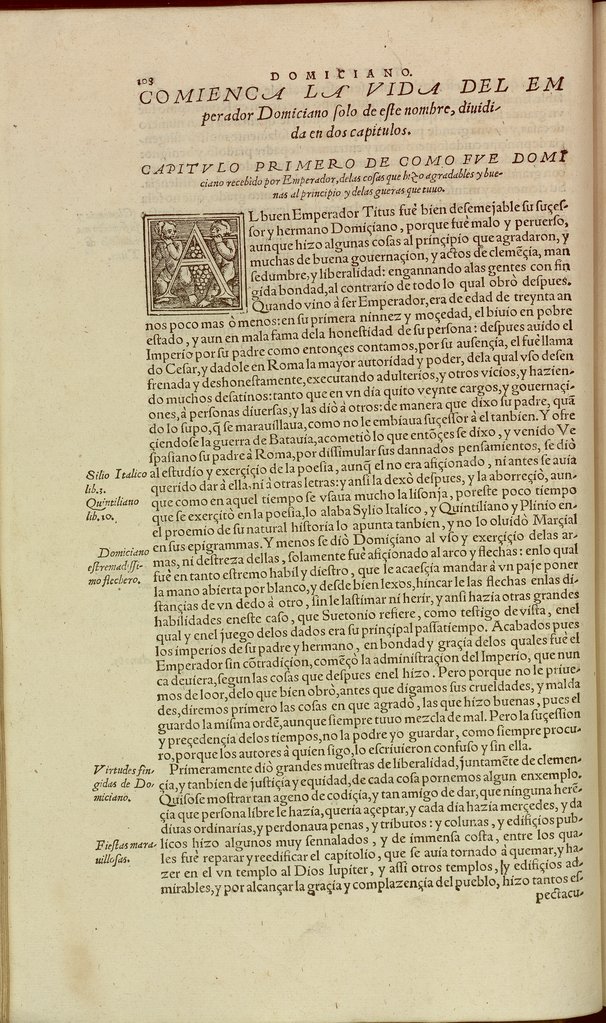 108
DOMICIANO.
COMIENCA LA VIDA DEL EM
perador Domiciano solo de este nombre, diuidi-
da en dos capitulos.
CAPITVLO PRIMERO DE COMO FVE DOMI
ciano recebido por Emperador, delas cosas que hizo agradables y bue-
nas al principio y delas gueras que tuuo.
AL buen Emperador Titus fuè bien desemejable su suçes-
sor y hermano Domiçiano, porque fuè malo y peruerso,
aunque hizo algunas cosas al prinçipio que agradaron, y
muchas de buena gouernaçion, y actos de clemẽçia, man
sedumbre, y liberalidad: engannando alas gentes con fin
gida bondad, al contrario de todo lo qual obrò despues.
Quando vino à ser Emperador, era de edad de treynta an
nos poco mas ò menos: en su primera ninnez y moçedad, el biuio en pobre
estado, y aun en mala fama dela honestidad de su persona: despues auido el
Imperio por su padre como entonçes contamos, por su ausençia, el fuè llama
do Cesar, y dadole en Roma la mayor autoridad y poder, dela qual vso desen
frenada y deshonestamente, executando adulterios, y otros vicios, y hazien-
do muchos desatinos: tanto que en vn dia quito veynte cargos, y gouernaçi-
ones, à personas diuersas, y las diò à otros: de manera que dixo su padre, quã
do lo supo, q̃ se marauillaua, como no le embiaua suçessor à el tanbien. Y ofre
çiendose la guerra de Batauia, acometiò lo que entõçes se dixo, y venido Ve
spasiano su padre à Roma, por dissimular sus dannados pensamientos, se diò
al estudio y exerçiçio de la poesia, aunq̃ el no era afiçionado, ni antes se auia
querido dar à ella. ni à otras letras: y ansi la dexò despues, y la aborreçiò, aun-
que como en aquel tiempo se vsaua mucho la lisonja, poreste poco tiempo
que se exerçitò en la poesia, lo alaba Sylio Italico, y Quintiliano y Plinio en-
el proemio de su natural historia lo apunta tanbien, y no lo oluidò Marçial
en sus epigrammas. Y menos se diò Domiçiano al vso y exerçiçio delas ar-
mas, ni destreza dellas, solamente fuè afiçionado al arco y flechas: enlo qual
fuè en tanto estremo habil y diestro, que le acaesçia mandar à vn paje poner
la mano abierta por blanco, y desde bien lexos, hincar le las flechas enlas di-
stançias de vn dedo à otro, sin le lastimar ni herir, y ansi hazia otras grandes
habilidades eneste caso, que Suetonio refiere, como testigo de vista, enel
qual y enel juego delos dados era su prinçipal passatiempo. Acabados pues
los imperios de su padre y hermano, en bondad y graçia delos quales fuè el
Emperador sin cõtradiçion, comẽçò la administraçion del Imperio, que nun
ca deuiera, segun las cosas que despues enel hizo. Pero porque no le priue-
mos de loor, delo que bien obrò, antes que digamos sus crueldades, y malda
des, diremos primero las cosas en que agradò, las que hizo buenas, pues el
guardo la misma ordẽ, aunque siempre tuuo mezcla de mal. Pero la suçession
y preçedençia delos tiempos, no la podre yo guardar, como siempre procu-
ro, porque los autores à quien sigo, lo escriuieron confuso y sin ella.
Primeramente diò grandes muestras de liberalidad, juntamẽte de clemen-
çia, y tanbien de justiçia y equidad, de cada cosa pornemos algun enxemplo.
Quisose mostrar tan ageno de codiçia, y tan amigo de dar, que ninguna herẽ-
çia que persona libre le hazia, queria açeptar, y cada dia hazia merçedes, y da
diuas ordinarias, y perdonaua penas, y tributos: y colunas, y edifiçios pub-
licos hizo algunos muy sennalados, y de immensa costa, entre los qua-
les fuè reparar y reedificar el capitolio, que se auia tornado à quemar, y ha-
zer en el vn templo al Dios Iupiter, y assi otros templos, y edifiçios ad-
mirables, y por alcançar la graçia y complazençia del pueblo, hizo tantos es-
pectacu-
Silio Italico
lib.3.
Quintiliano
lib.10.
Domiciano
estremadissi-
mo flechero.
Virtudes fin-
gidas de Do-
miciano.
Fiestas mara-
uillosas.